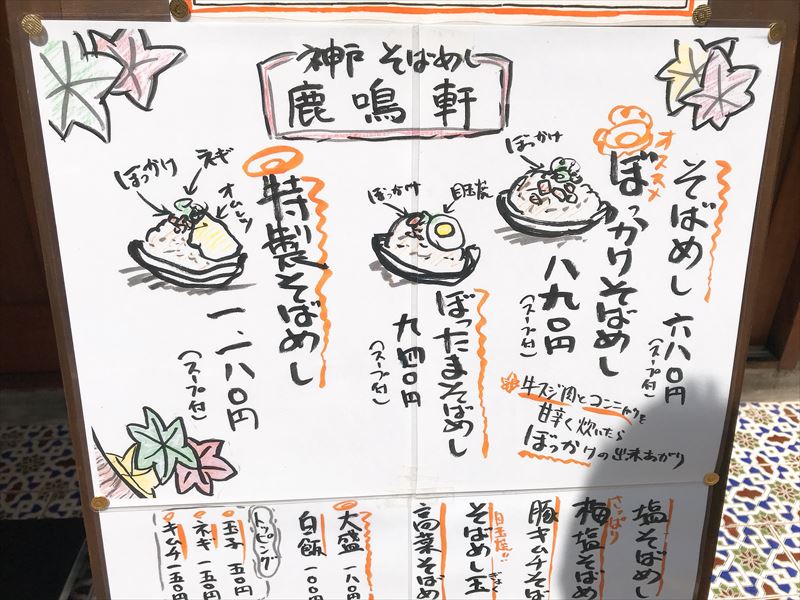 神戸 そばめし
鹿鳴軒
そばめし 六八〇円
(スープ付)
オススメ
ぼっかけそばめし
八九〇円
(スープ付)
ぼっかけ
牛スジ肉とコンニャクを
甘辛く炊いたら
ぼっかけの出来あがり
ぼったまそばめし
九四〇円
(スープ付)
ぼっかけ
目玉焼
特製そばめし
一、一八〇円
(スープ付)
ぼっかけ
ネギ
オムレツ
塩そばめし
さっぱり
梅塩そばめ
豚キムチそば
目玉焼!!
そばめし玉
ぎょく
高菜そばめ
大盛 一八〇円
白飯 一〇〇円
トッピング
玉子 五〇円
ネギ 一五〇円
キムチ 一五〇円